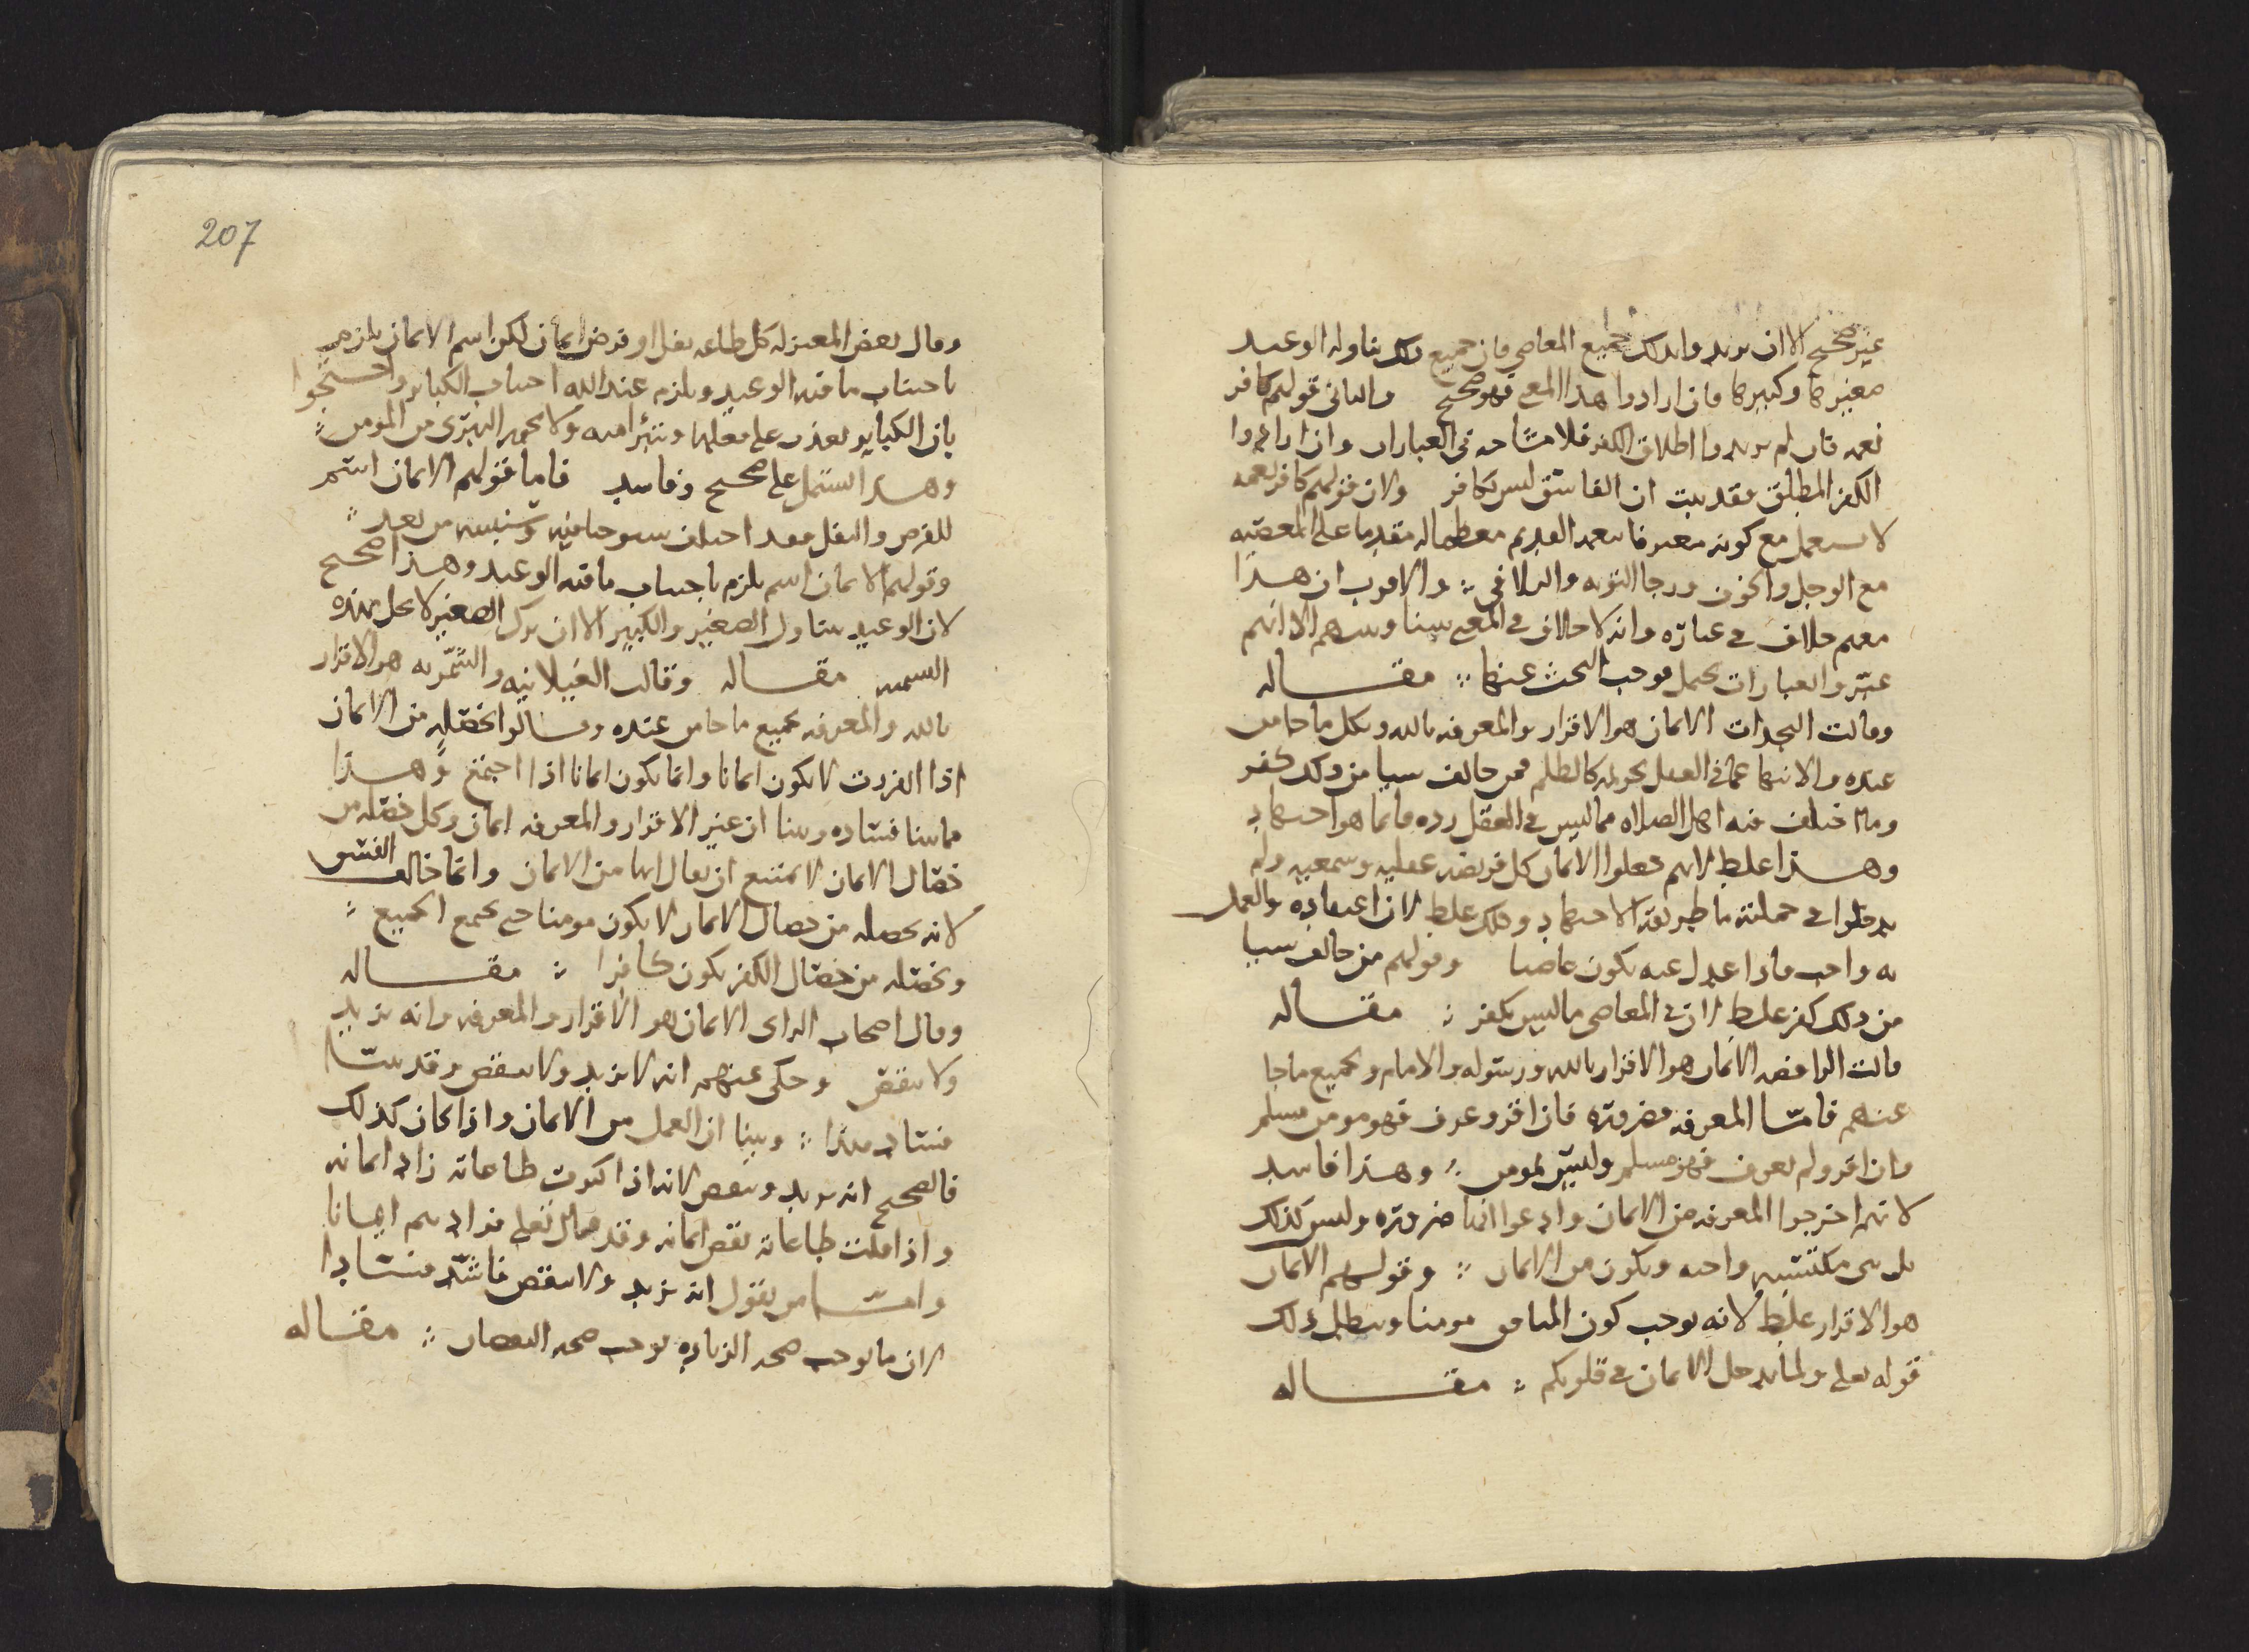 غير صحيح الا ان يريدوا بذلك جميع المعاصي فان جميع ذلك يتناوله الوعيد
صغيرها وكبيرها فان ارادوا هذا المعنى فهو صحيح والثاني قولهم كافر
نعمه فان لم يريدوا اطلاق الكفر فلا مشاحه في العبارات وان ارادوا
الكفر المطلق فقد بينت ان الفاسق ليس بكافر ولان قولهم كافر نعمه
لا يستعمل مع كونه معترفا بنعم القديم معظما له مقدما على المعصيه
مع الوجل والخوف ورجا التوبه والتلافي والاقرب ان هذا
منهم خلاف في عباره وانه لا خلاف في المعنى بيننا وبينهم الا انهم
عبروا بعبارات يحمل فوجب البحث عنها مقاله
وقالت النجدات الايمان هو الاقرار والمعرفه بالله وبكل ما جا من
عنده والانتها عما في العقل تحريمه كالظلم فمن خالف شيا من ذلك كفر
وما اختلف فيه اهل الصلاه مما ليس في العقل رده فانما هو اجتهاد
وهذا غلط لانهم جعلوا الايمان كل فريضه عقليه وسمعيه ولم
يدخلوا في جملته ما طريقه الاجتهاد وذلك غلط لان اعتقاده والعمل
به واجب فاذا عدل عنه يكون عاصيا وقولهم من خالف شيا
من ذلك كفر غلط لان في المعاصي ما ليس بكفر مقاله
قالت الرافضه الايمان هو الاقرار بالله ورسوله والامام وبجميع ما جا
عنهم فاما المعرفه فضروره فان اقر وعرف فهو مومن مسلم
وان اقر ولم يعرف فهو مسلم وليس بمومن وهذا فاسد
لانهم اخرجوا المعرفه من الايمان وادعوا انها ضروره وليس كذلك
بل هي مكتسبه واجبه ويكون من الايمان وقولهم الايمان
هو الاقرار غلط لانه يوجب كون المنافق مومنا ويبطل ذلك
قوله تعالى ولما يدخل الايمان في قلوبكم مقاله
207
وقال بعض المعتزله كل طاعه نفل او فرض ايمان لكن اسم الايمان يلزم
باجتناب ما فيه الوعيد ويلزم عند الله اجتناب الكباير واحتجوا
بان الكباير يعذب على فعلها ويتبرا منه ولا يجوز التبري من المومن
وهذا يشتمل على صحيح وفاسد فاما قولهم الايمان اسم
للفرض والنفل فقد اختلف شيوخنا فيه وسنبينه من بعد
وقولهم الايمان اسم يلزم باجتناب ما فيه الوعيد وهذا صحيح
لان الوعيد يتناول الصغير والكبير الا ان ترك الصغير لا يخل بهذه
التسميه مقاله وقالت الغيلانيه والشمريه هو الاقرار
بالله والمعرفه بجميع ما جا من عنده وقالوا الخصله من الايمان
اذا انفردت لا يكون ايمانا وانما يكون ايمانا اذا اجتمع وهذا
مما بينا فساده وبينا ان غير الاقرار والمعرفه ايمان وكل خصله من
خصال الايمان لا يمتنع ان يقال انها من الايمان وانما خالف الفسق
لانه بخصله من خصال الايمان لا يكون مومنا حتى يجمع الجميع
وبخصله من خصال الكفر يكون كافرا مقاله
وقال اصحاب الراي الايمان هو الاقرار والمعرفه وانه يزيد
ولا ينقص وحكى عنهم انه لا يزيد ولا ينقص وقد بينا
فساد هذا وبينا ان العمل من الايمان واذا كان كذلك
فالصحيح انه يزيد وينقص لانه اذا كثرت طاعاته زاد ايمانه
واذا قلت طاعاته نقص ايمانه وقد قال تعالى فزادهم ايمانا
واما من يقول انه يزيد ولا ينقص فاشد فسادا
لان ما يوجب صحه الزياده يوجب صحه النقصان مقاله